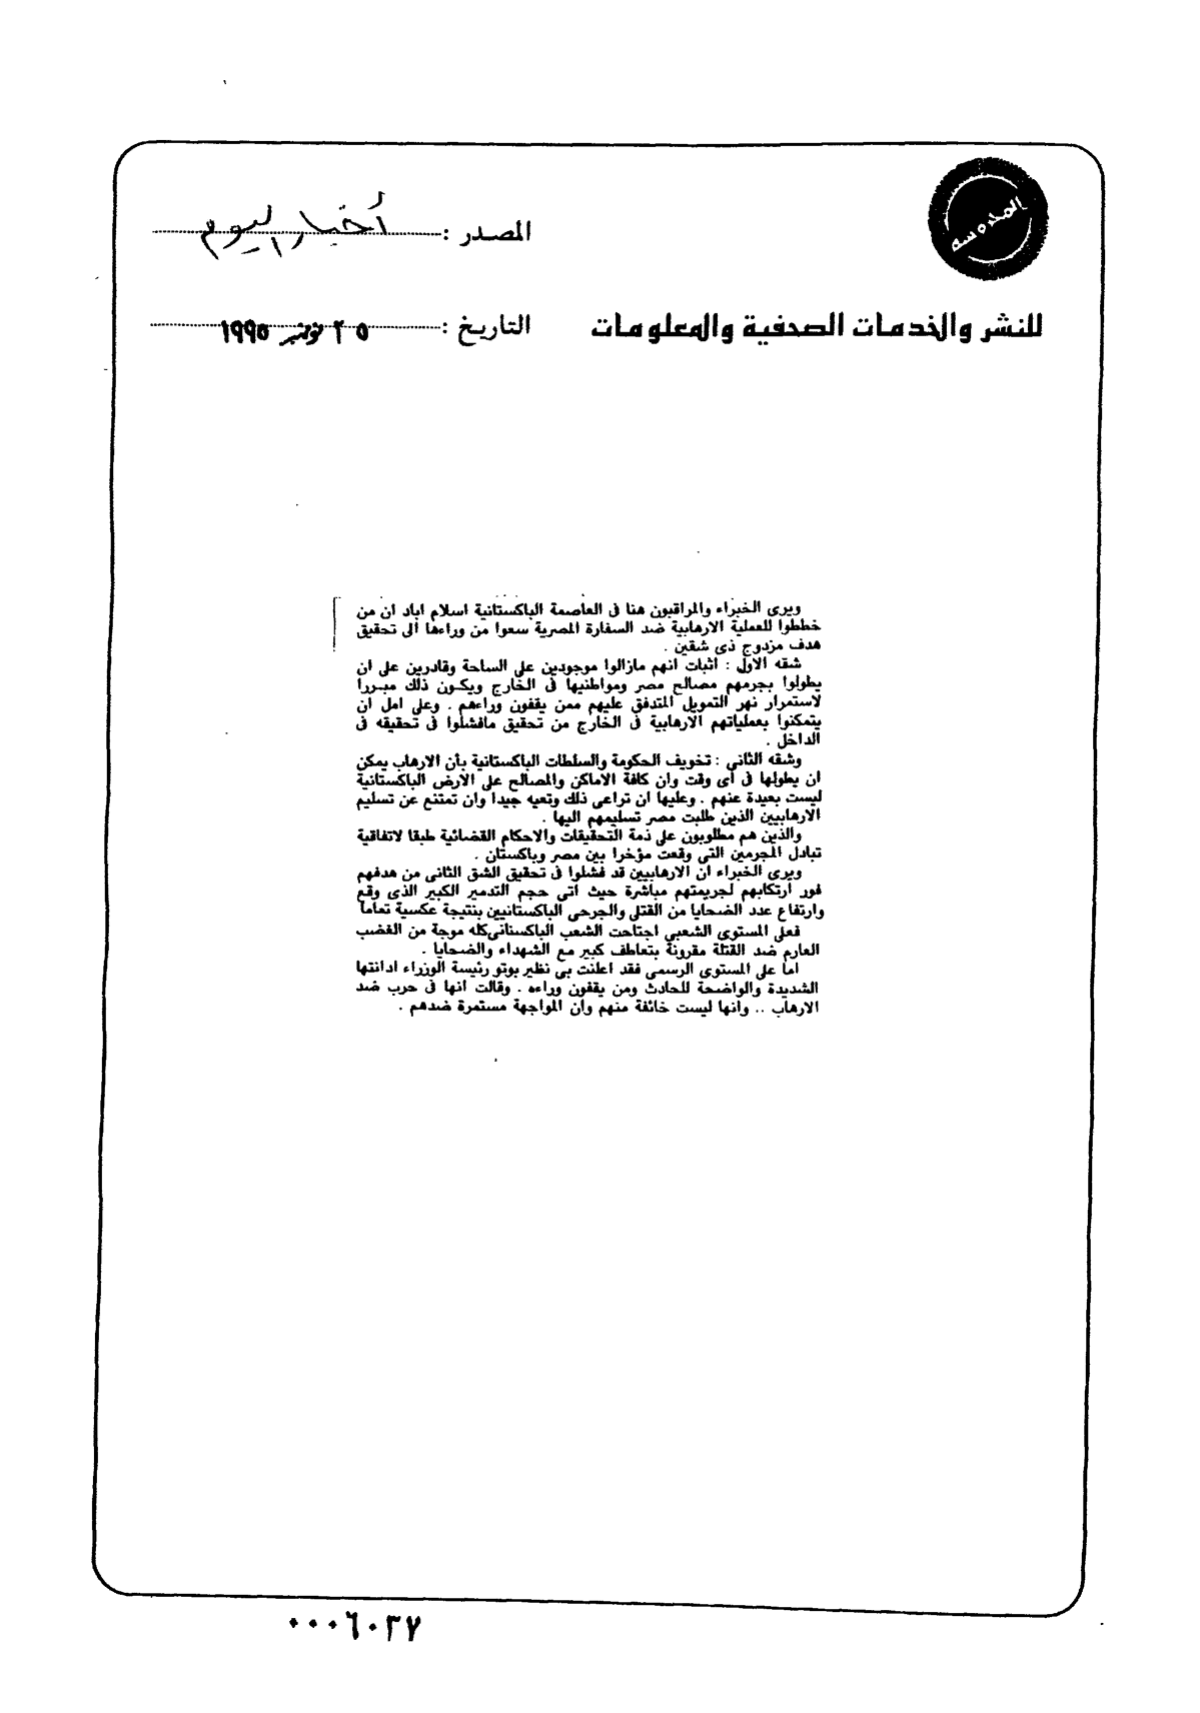 المحروسة
المصدر : أخبار اليوم
للنشر والخدمات الصحفية والمعلومات
التاريخ : ٢٥ نوفمبر ١٩٩٥
ويرى الخبراء والمراقبون هنا فى العاصمة الباكستانية اسلام اباد ان من
خططوا للعملية الارهابية ضد السفارة المصرية سعوا من وراءها الى تحقيق
هدف مزدوج ذى شقين .
شقه الاول : اثبات انهم مازالوا موجودين على الساحة وقادرين على ان
يطولوا بجرمهم مصالح مصر ومواطنيها فى الخارج ويكون ذلك مبررا
لاستمرار نهر التمويل المتدفق عليهم ممن يقفون وراءهم . وعلى امل ان
يتمكنوا بعملياتهم الارهابية فى الخارج من تحقيق مافشلوا فى تحقيقه فى
الداخل .
وشقه الثانى : تخويف الحكومة والسلطات الباكستانية بأن الارهاب يمكن
ان يطولها فى أى وقت وان كافة الاماكن والمصالح على الارض الباكستانية
ليست بعيدة عنهم . وعليها ان تراعى ذلك وتعيه جيدا وان تمتنع عن تسليم
الارهابيين الذين طلبت مصر تسليمهم اليها .
والذين هم مطلوبون على ذمة التحقيقات والاحكام القضائية طبقا لاتفاقية
تبادل المجرمين التى وقعت مؤخرا بين مصر وباكستان .
ويرى الخبراء ان الارهابيين قد فشلوا فى تحقيق الشق الثانى من هدفهم
فور ارتكابهم لجريمتهم مباشرة حيث اتى حجم التدمير الكبير الذى وقع
وارتفاع عدد الضحايا من القتلى والجرحى الباكستانيين بنتيجة عكسية تماما
فعلى المستوى الشعبى اجتاحت الشعب الباكستانى كله موجة من الغضب
العارم ضد القتلة مقرونة بتعاطف كبير مع الشهداء والضحايا .
اما على المستوى الرسمى فقد اعلنت بى نظير بوتو رئيسة الوزراء ادانتها
الشديدة والواضحة للحادث ومن يقفون وراءه . وقالت انها فى حرب ضد
الارهاب .. وانها ليست خائفة منهم وان المواجهة مستمرة ضدهم .
٠٠٠٦٠٣٧